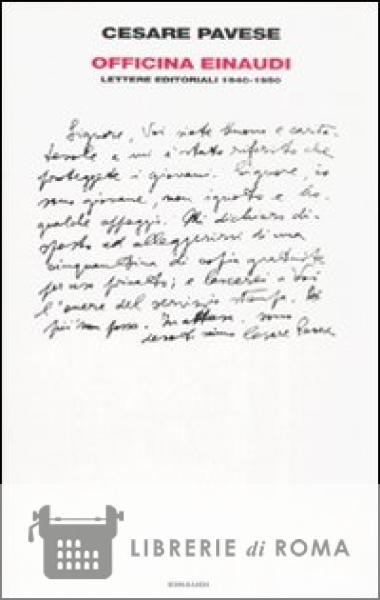 CESARE PAVESE
OFFICINA EINAUDI
LETTERE EDITORIALI 1940-1950
Signore, Voi siete buono e carita-
tevole e mi è stato riferito che
proteggete i giovani. Signore, io
sono giovane, non ignoto e ho
qualche appoggio. Mi dichiaro di-
sposto ad alleggerirvi di una
cinquantina di copie gratuite
per uso privato; e lascerei a Voi
l'onere del servizio stampa. Di
più non posso. In attesa, sono
Cesare Pavese
LIBRERIE di ROMA
EINAUDI